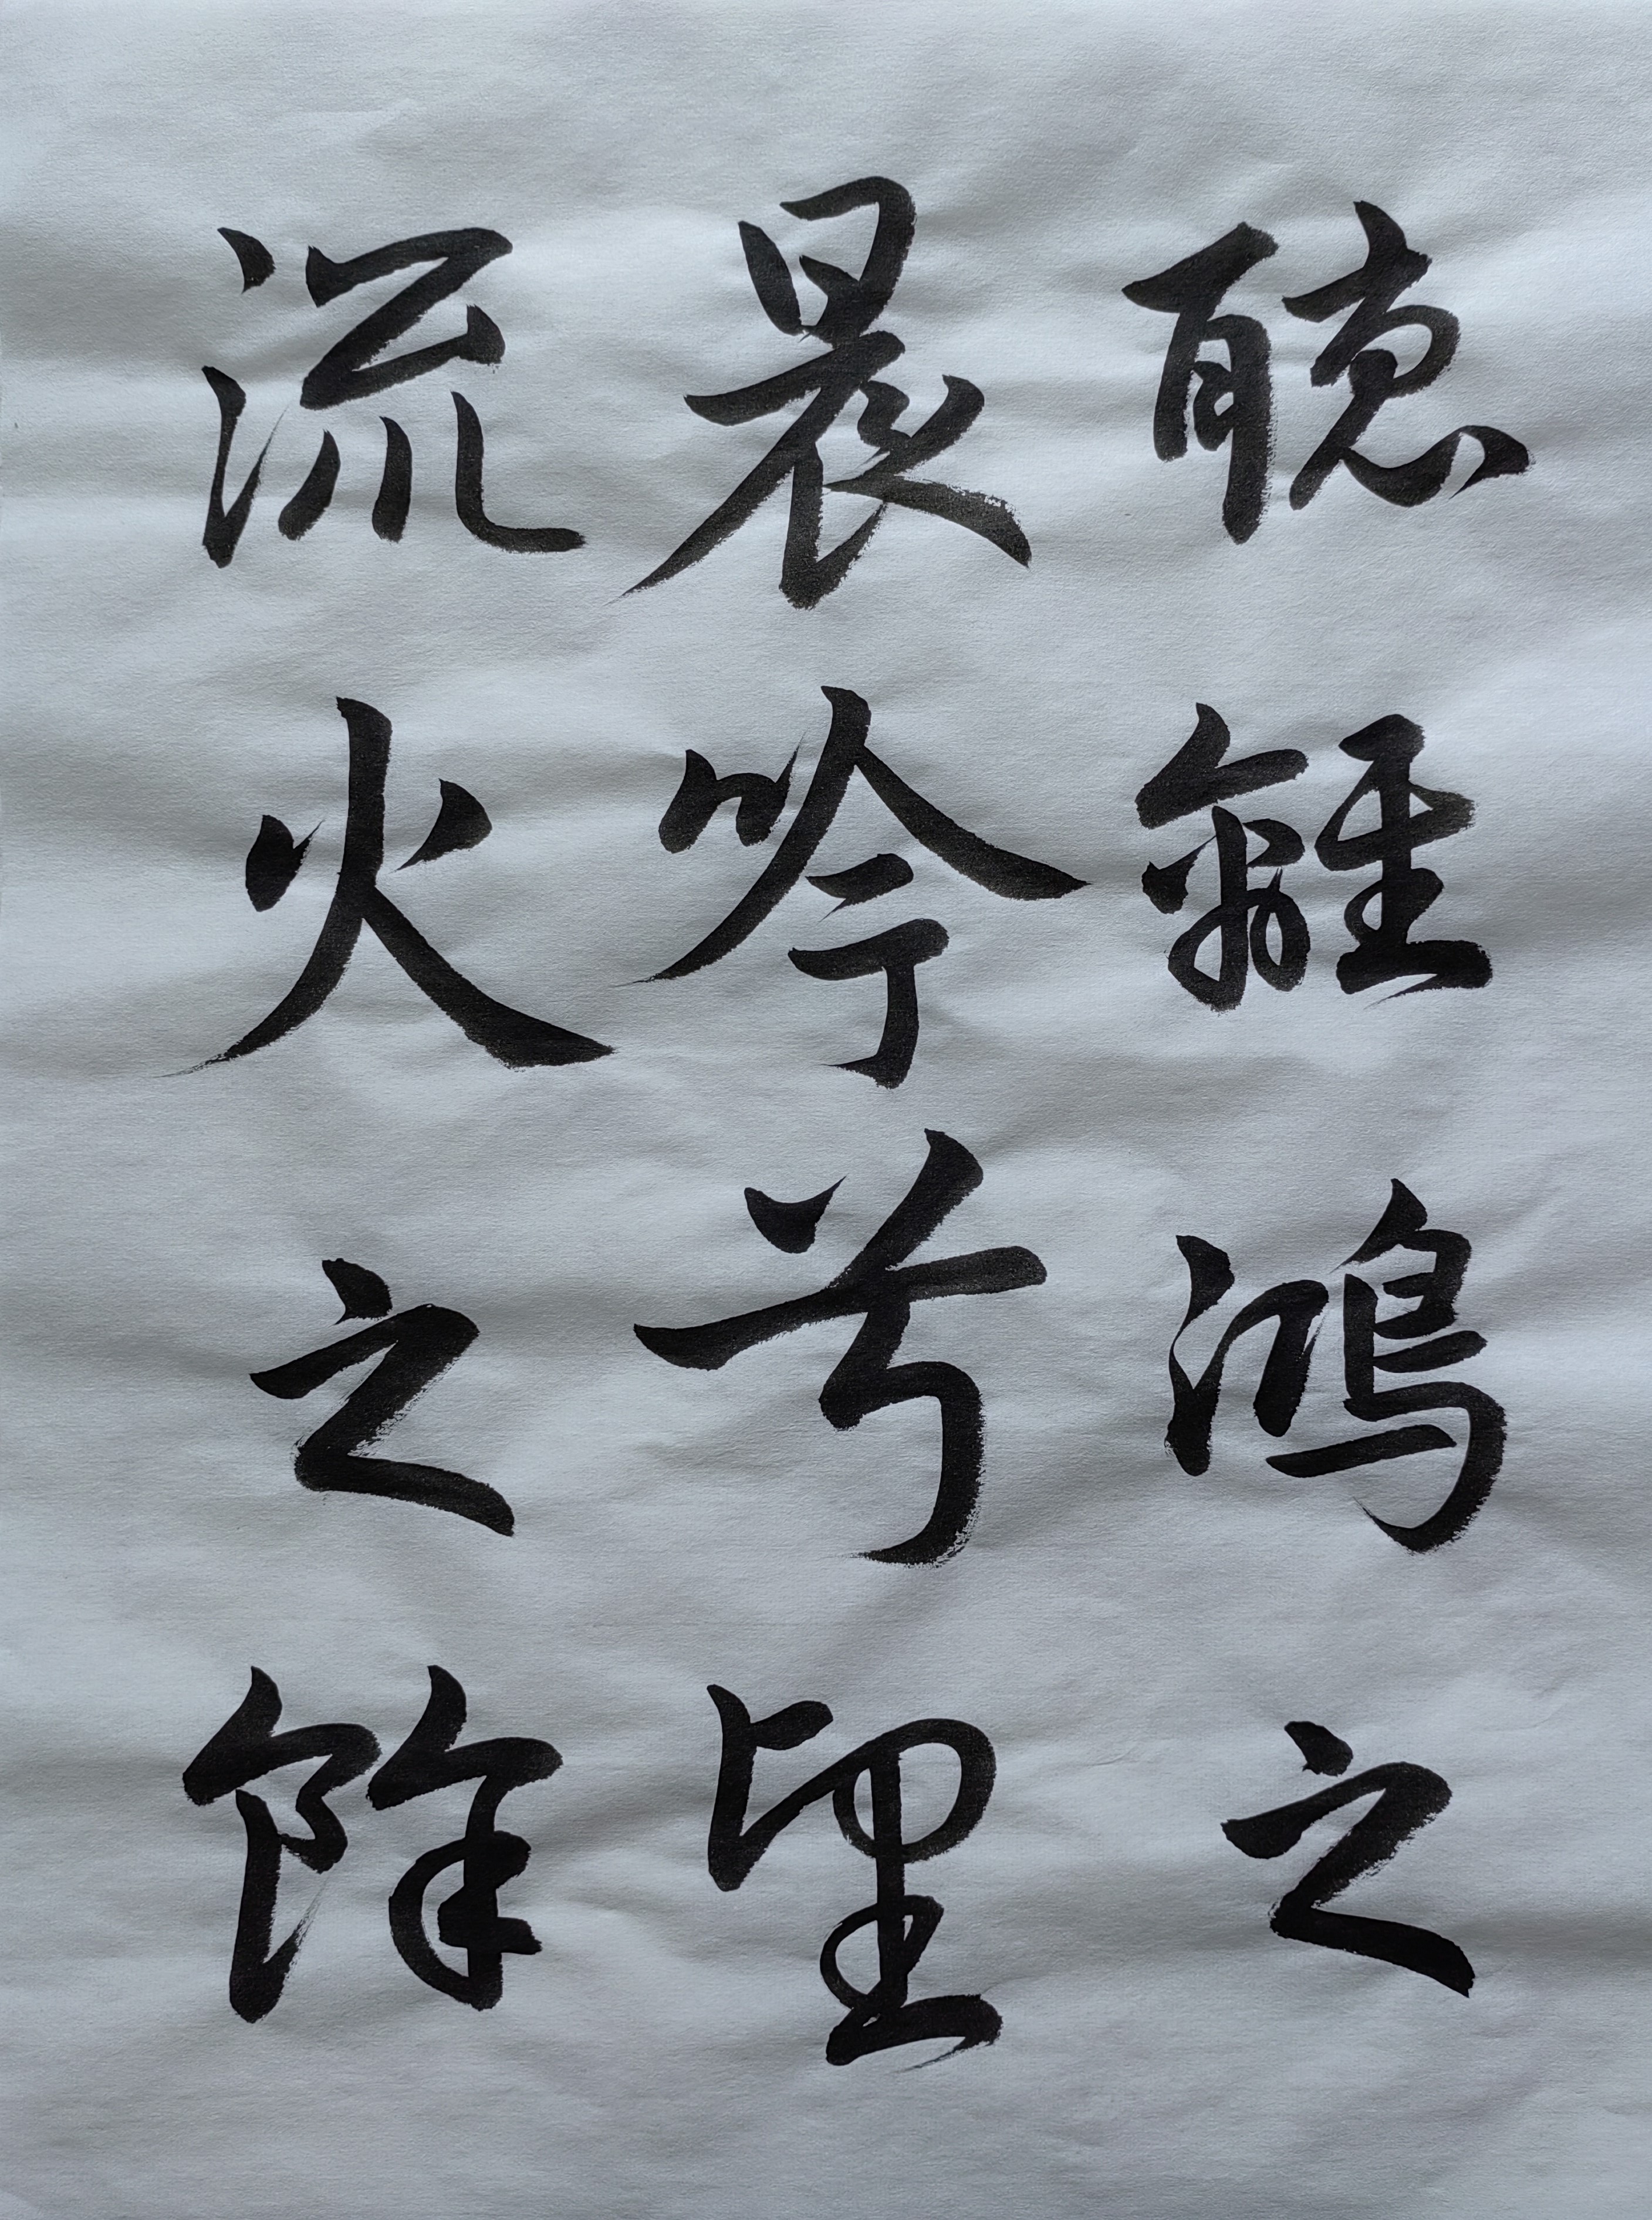 聽離鴻之
晨吟兮望
流火之餘